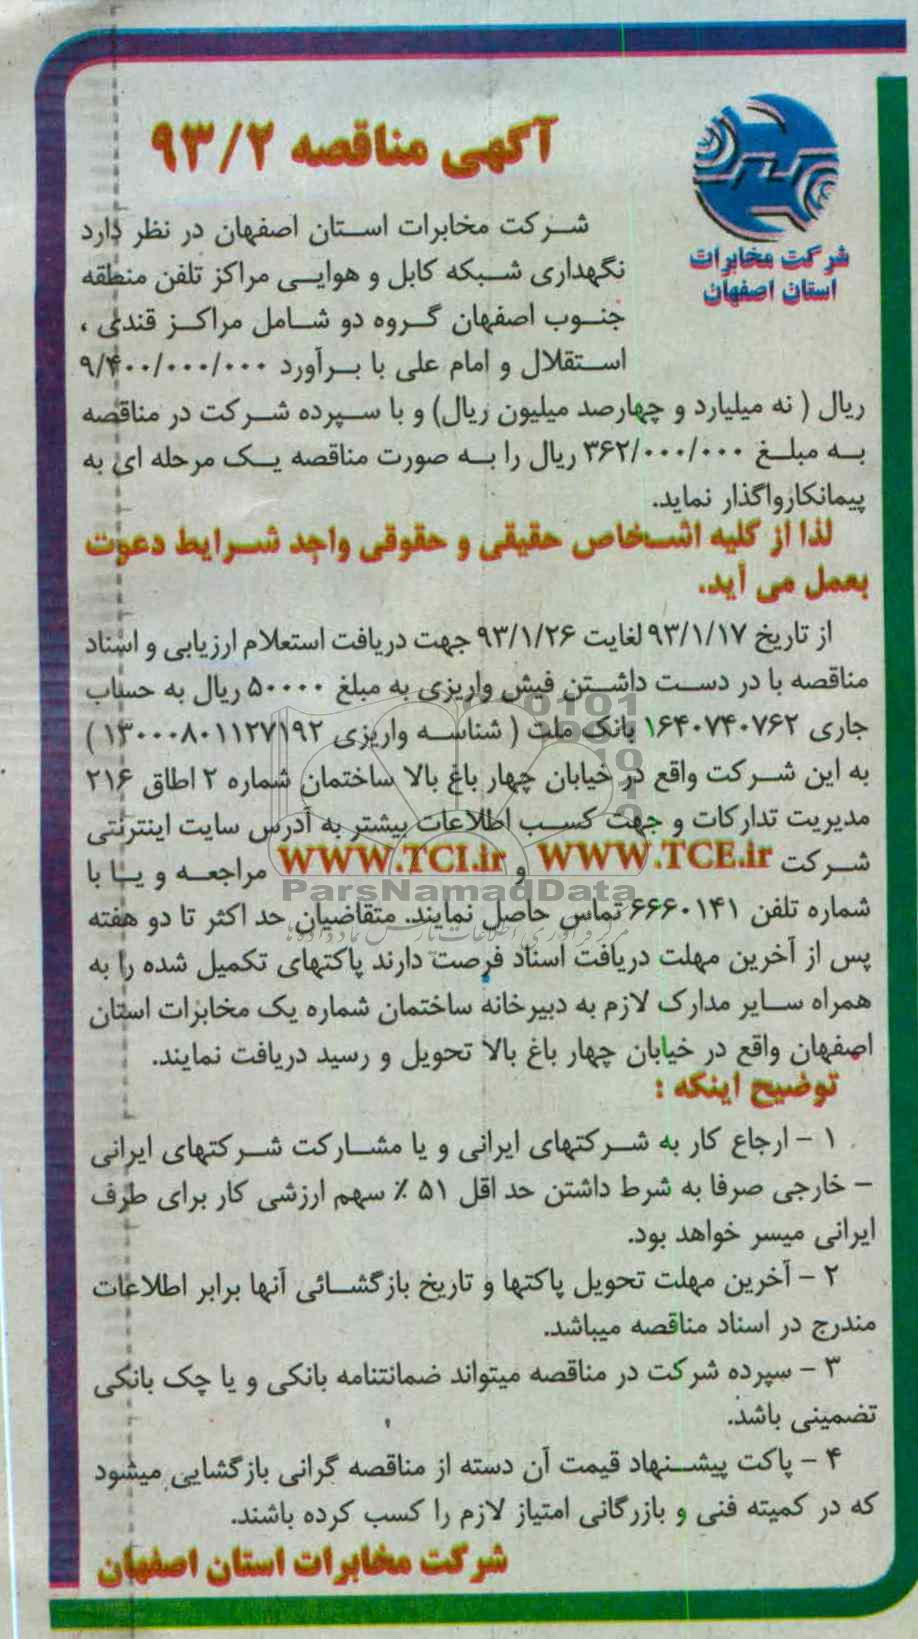 آگهی مناقصه ۹۳/۲
شرکت مخابرات
استان اصفهان
شرکت مخابرات استان اصفهان در نظر دارد
نگهداری شبکه کابل و هوایی مراکز تلفن منطقه
جنوب اصفهان گروه دو شامل مراکز قندی ،
استقلال و امام علی با برآورد ۹/۴۰۰/۰۰۰/۰۰۰
ریال ( نه میلیارد و چهارصد میلیون ریال) و با سپرده شرکت در مناقصه
به مبلغ ۳۶۲/۰۰۰/۰۰۰ ریال را به صورت مناقصه یک مرحله ای به
پیمانکارواگذار نماید.
لذا از کلیه اشخاص حقیقی و حقوقی واجد شرایط دعوت
بعمل می آید.
از تاریخ ۹۳/۱/۱۷ لغایت ۹۳/۱/۲۶ جهت دریافت استعلام ارزیابی و اسناد
مناقصه با در دست داشتن فیش واریزی به مبلغ ۵۰۰۰۰ ریال به حساب
جاری ۱۶۴۰۷۴۰۷۶۲ بانک ملت ( شناسه واریزی ۱۳۰۰۰۸۰۱۱۲۷۱۹۲ )
به این شرکت واقع در خیابان چهار باغ بالا ساختمان شماره ۲ اطاق ۲۱۶
مدیریت تدارکات و جهت کسب اطلاعات بیشتر به آدرس سایت اینترنتی
شرکت WWW.TCE.ir و WWW.TCI.ir مراجعه و یا با
ParsNamadData
شماره تلفن ۶۶۶۰۱۴۱ تماس حاصل نمایند. متقاضیان حد اکثر تا دو هفته
پس از آخرین مهلت دریافت اسناد فرصت دارند پاکتهای تکمیل شده را به
همراه سایر مدارک لازم به دبیرخانه ساختمان شماره یک مخابرات استان
اصفهان واقع در خیابان چهار باغ بالا تحویل و رسید دریافت نمایند.
توضیح اینکه :
۱ - ارجاع کار به شرکتهای ایرانی و یا مشارکت شرکتهای ایرانی
- خارجی صرفا به شرط داشتن حد اقل ۵۱ ٪ سهم ارزشی کار برای طرف
ایرانی میسر خواهد بود.
۲ - آخرین مهلت تحویل پاکتها و تاریخ بازگشائی آنها برابر اطلاعات
مندرج در اسناد مناقصه میباشد.
۳ - سپرده شرکت در مناقصه میتواند ضمانتنامه بانکی و یا چک بانکی
تضمینی باشد.
۴ - پاکت پیشنهاد قیمت آن دسته از مناقصه گرانی بازگشایی میشود
که در کمیته فنی و بازرگانی امتیاز لازم را کسب کرده باشند.
شرکت مخابرات استان اصفهان